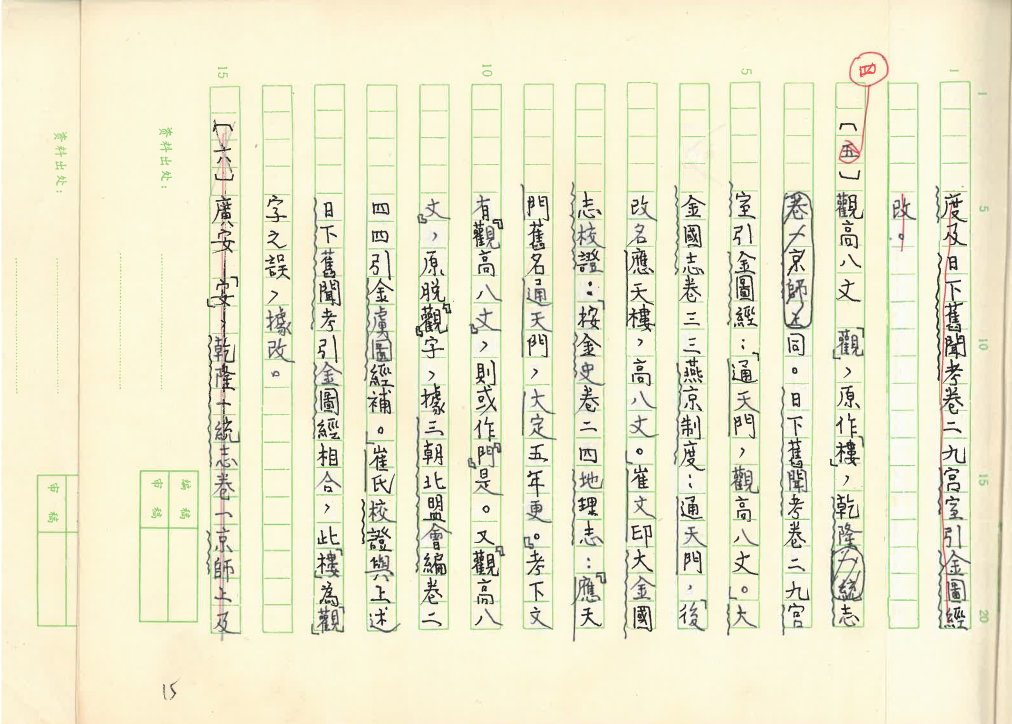 度及日下舊聞考卷二九宮室引金圖經
改。
四
〔五〕觀高八文 「觀」，原作「樓」，乾隆一統志
卷一京師上同。日下舊聞考卷二九宮
室引金圖經：「通天門，觀高八丈。」大
金國志卷三三燕京制度：「通天門，後
改名應天樓，高八丈。」崔文印大金國
志校證：「按金史卷二四地理志：『應天
門舊名通天門，大定五年更。』考下文
有『觀高八丈』，則或作『門』是。又『觀高八
丈』，原脱『觀』字，據三朝北盟會編卷二
四四引金虜圖經補。」崔氏校證與上述
日下舊聞考引金圖經相合，此「樓」為「觀」
字之誤，據改。
〔六〕廣安 「安」，乾隆一統志卷一京師上及
1
5
10
15
1
5
10
15
20
资料出处：
编稿
审稿
资料出处：
编稿
审稿
15